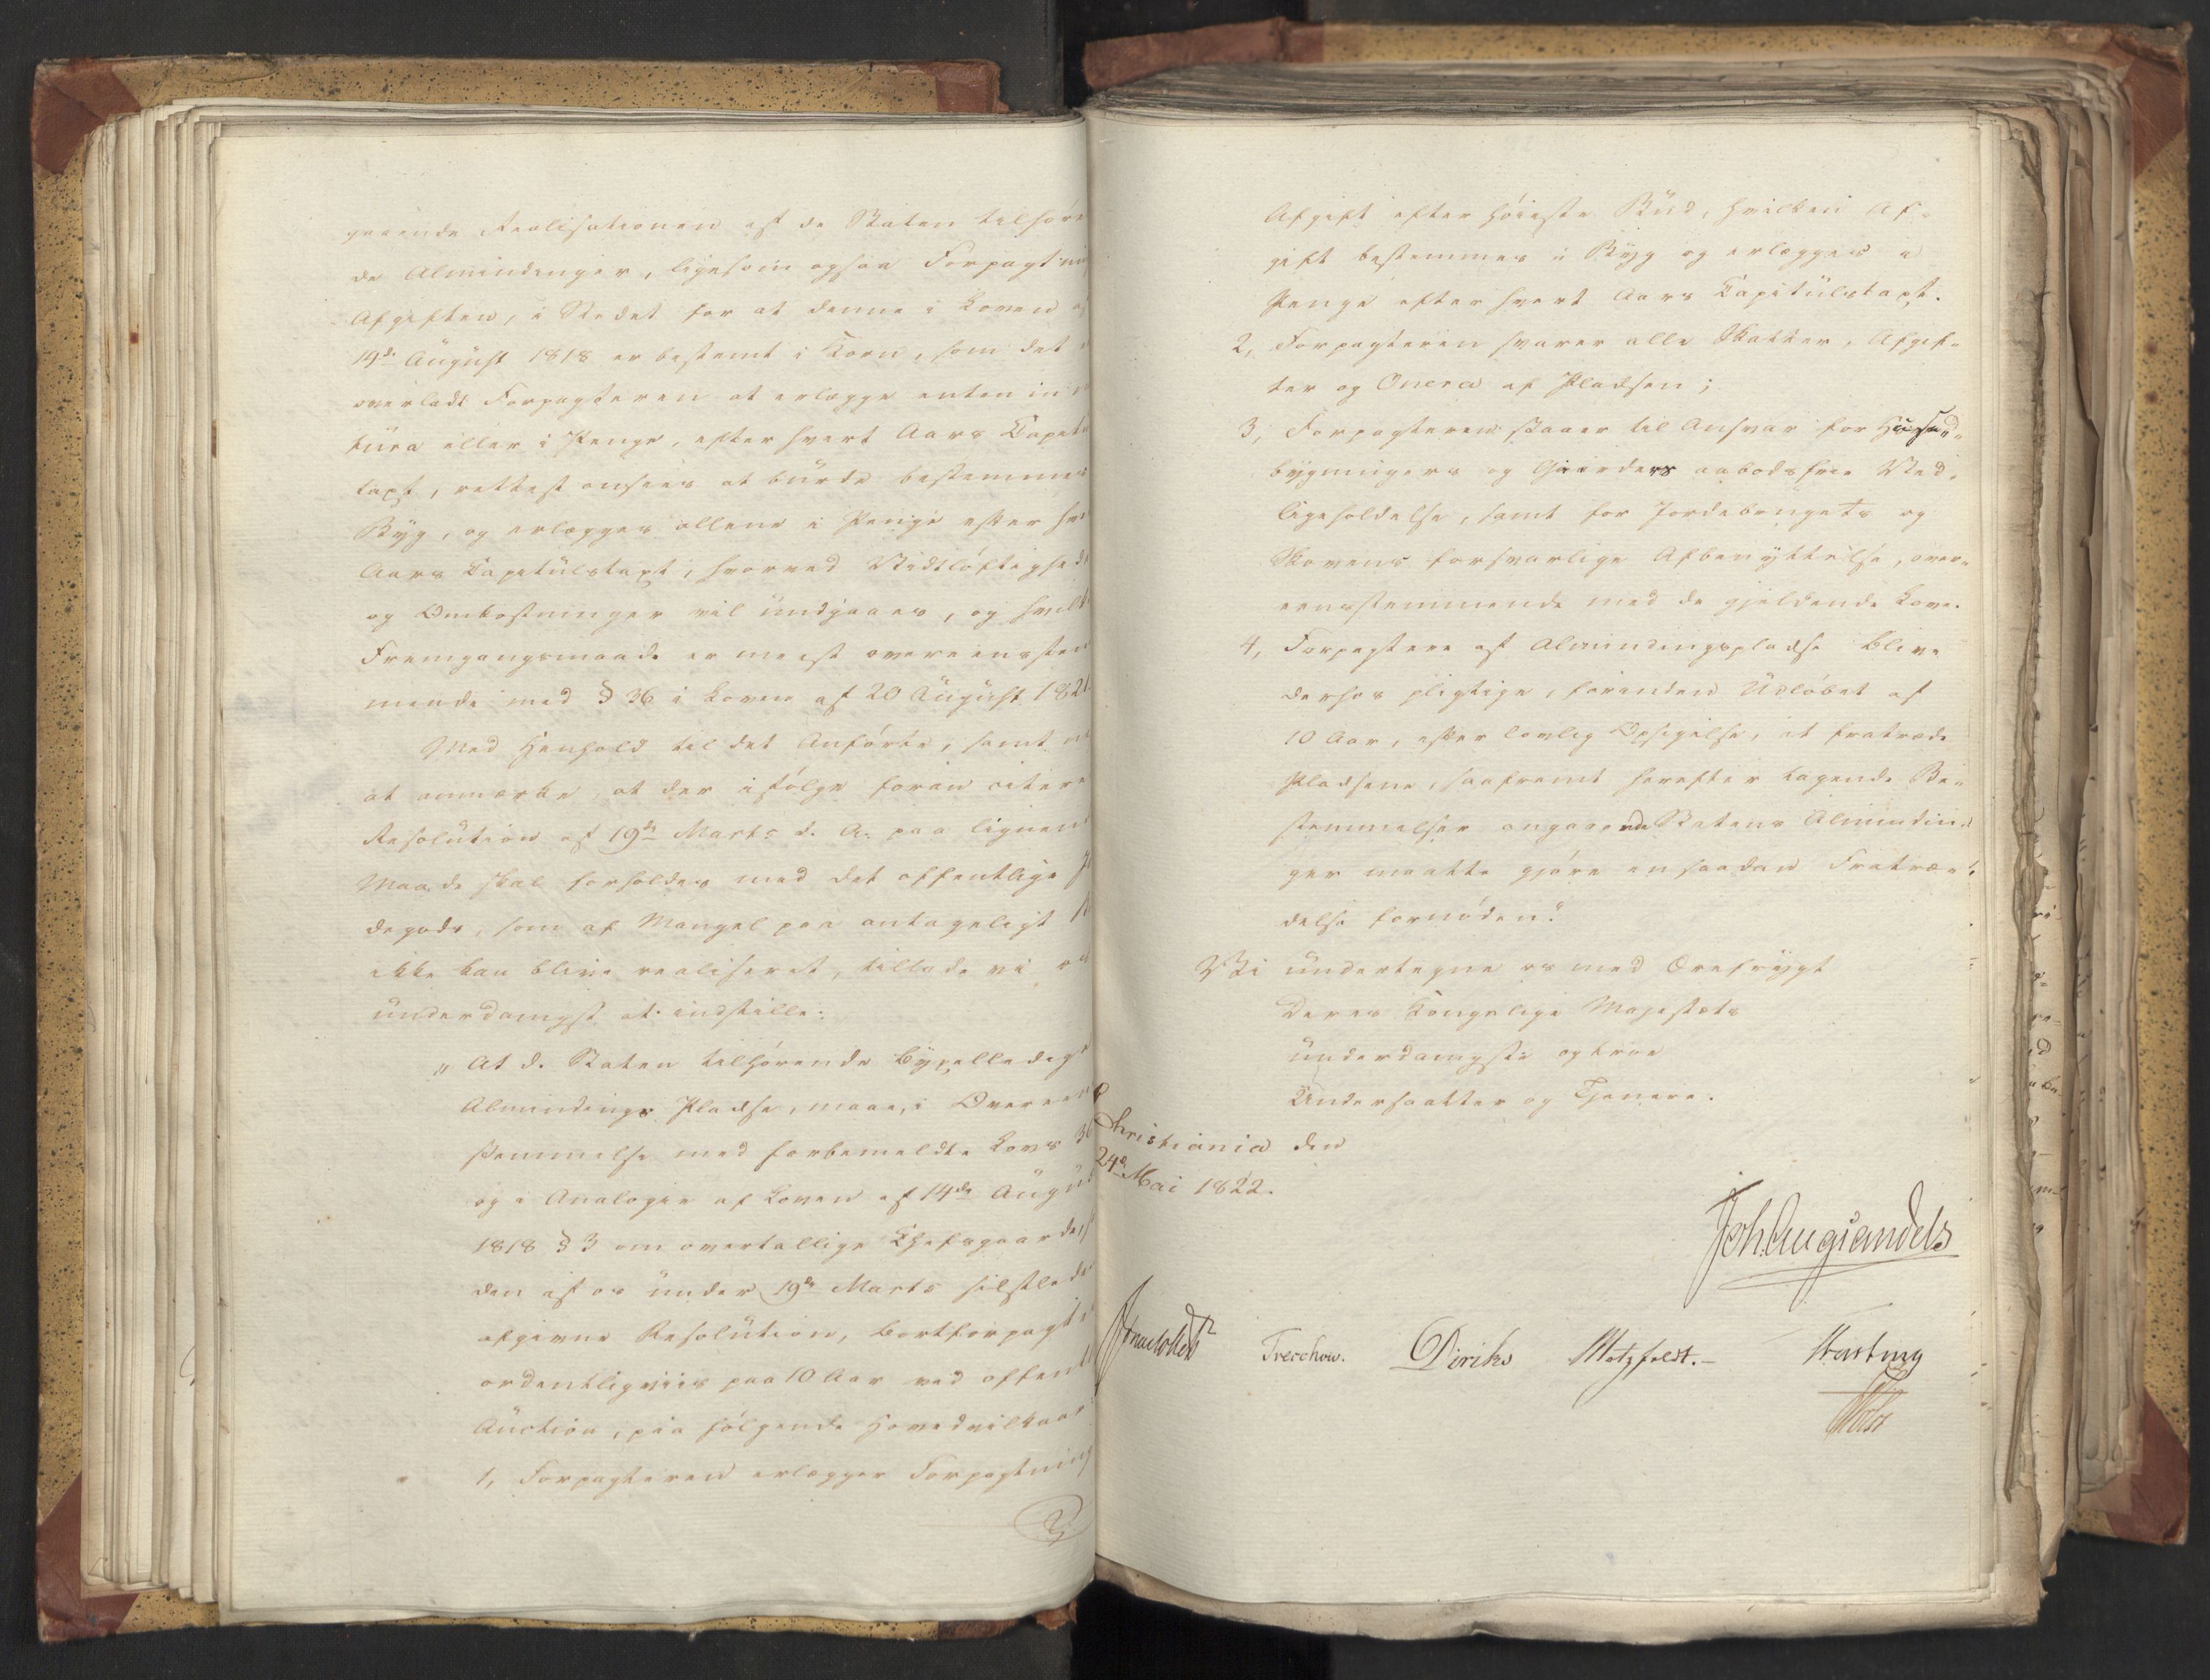 grænde Realisationen af de Staten tilhøren
de Almindinger, ligesom ogsaa Forpagtnings
Afgiften, i Stedet for at denne i Loven af
14de August 1818 er bestemt i Korn, som det er
overladt Forpagteren at erlægge enten in na
tura eller i Penge, efter hvert Aars Capitels
taxt, rettest ansees at burde bestemmes i
Byg, og erlægges allene i Penge efter hvert
Aars Capitulstaxt, hvorved Vidtløftighed
og Omkostninger vil undgaaes, og hvilken
Fremgangsmaade er meest overeensstem
mende med § 36 i Loven af 20 August 1821.
Med Henhold til det Anførte, samt
at anmærke, at der ifølge foran citere
Resolution af 19de Marts d. A. paa lignende
Maade skal forholdes med det offentlige Jor
degods, som af Mangel paa antageligt Bud
ikke kan blive realiseret, tillade vi os
underdanigst at indstille:
"At de Staten tilhørende byxelledige
Almindings Pladse, maae, i Overeens
stemmelse med forbemeldte Lovs 36
og i Analogie af Loven af 14de August
1818 § 3 om overtallige Chefsgaarde, og
den af os under 19de Marts sidstleden
afgivne Resolution, bortforpagtes
ordentligviis paa 10 Aar ved offentlig
Auction, paa følgende Hovedvilkaar:
1, Forpagteren erlægger Forpagtnings
Afgift efter høieste Bud, hvilken Af-
gift bestemmes i Byg og erlægges i
Penge efter hvert Aars Capitulstaxt.
2, Forpagteren svarer alle Skatter, Afgif-
ter og Onera af Pladsen;
3, Forpagteren staaer til Ansvar for Husenes
bygningers og Gjerders aabodsfrie Ved-
ligeholdelse, samt for Jordebrugets og
Skovens forsvarlige Afbenyttelse, over-
eensstemmende med de gjeldende Love.
4, Forpagtere af Almindingspladse blive
derhos pligtige, forinden Udløbet af
10 Aar, efter lovlig Opsigelse, at fratræde
Pladsene, saafremt herefter tagende Be-
stemmelser angaaende Statens Almindin-
ger maatte gjøre en saadan Fratræ-
delse fornøden."
Vi undertegne os med Ærefrygt
Deres Kongelige Majestæts
underdanigste og troe
Undersaatter og Tjenere.
Christiania den
24de Mai 1822.
Joh. Aug. Sandels
Sommerhielm
Treschow. Diriks Motzfeldt.- Fasting
Holst